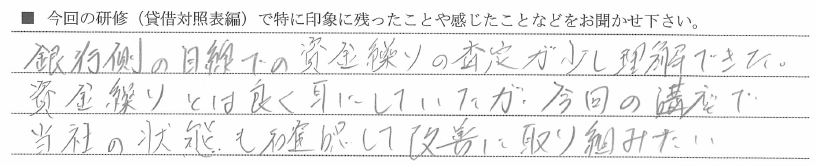 ■ 今回の研修（貸借対照表編）で特に印象に残ったことや感じたことなどをお聞かせ下さい。
銀行側の目線での資金繰りの査定が少し理解できた。
資金繰りとは良く耳にしていたが、今回の講座で
当社の状態も確認して改善に取り組みたい